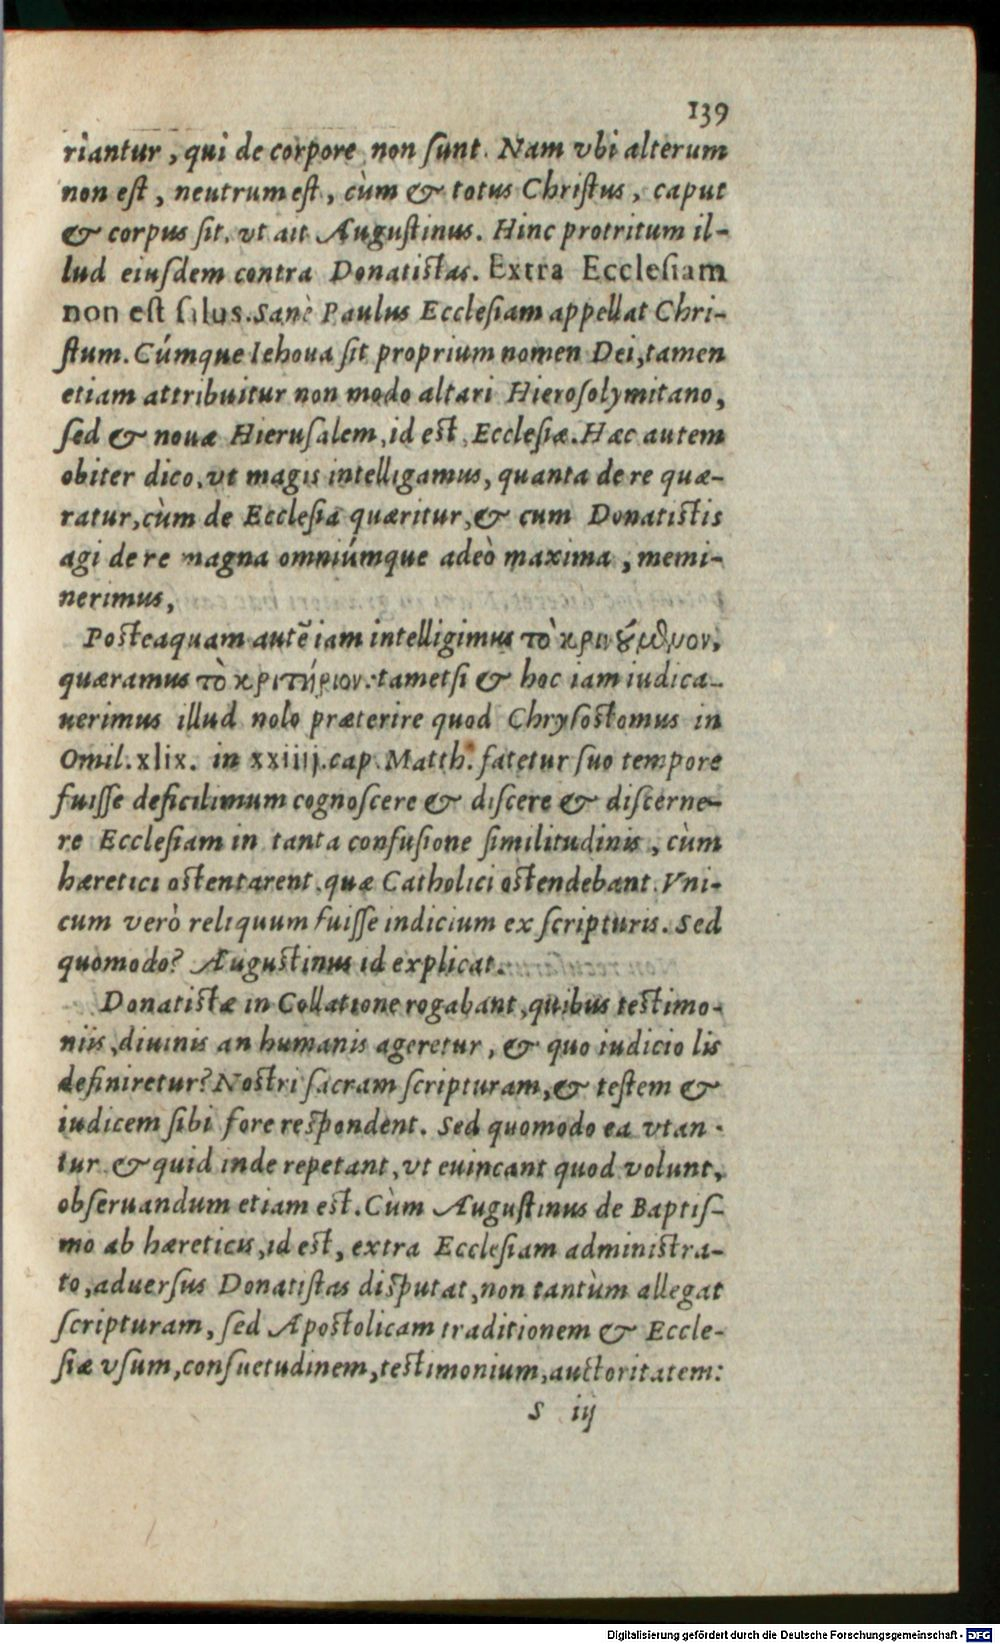 139
riantur, qui de corpore non sunt. Nam vbi alterum
non est, neutrum est, cùm & totus Christus, caput
& corpus sit, vt ait Augustinus. Hinc protritum il-
lud eiusdem contra Donatistas. Extra Ecclesiam
non est salus. Sanè Paulus Ecclesiam appellat Chri-
stum. Cúmque Iehoua sit proprium nomen Dei, tamen
etiam attribuitur non modo altari Hierosolymitano,
sed & nouæ Hierusalem, id est, Ecclesiæ. Hæc autem
obiter dico, vt magis intelligamus, quanta de re quæ-
ratur, cùm de Ecclesia quæritur, & cum Donatistis
agi de re magna omniúmque adeò maxima, memi-
nerimus,
Posteaquam autē iam intelligimus τὸ κρινόμενον,
quæramus τὸ κριτήριον: tametsi & hoc iam iudica-
uerimus illud nolo præterire quod Chrysostomus in
Omil. xlix. in xxiiij. cap. Matth. fatetur suo tempore
fuisse deficilimum cognoscere & discere & discerne-
re Ecclesiam in tanta confusione similitudinis, cùm
hæretici ostentarent, quæ Catholici ostendebant. Vni-
cum verò reliquum fuisse indicium ex scripturis. Sed
quomodo? Augustinus id explicat.
Donatistæ in Collatione rogabant, quibus testimo-
niis, diuinis an humanis ageretur, & quo iudicio lis
definiretur? Nostri sacram scripturam, & testem &
iudicem sibi fore respondent. Sed quomodo ea vtan-
tur & quid inde repetant, vt euincant quod volunt,
obseruandum etiam est. Cùm Augustinus de Baptis-
mo ab hæreticis, id est, extra Ecclesiam administra-
to, aduersus Donatistas disputat, non tantùm allegat
scripturam, sed Apostolicam traditionem & Eccle-
siæ vsum, consuetudinem, testimonium, auctoritatem:
S iij
Digitalisierung gefördert durch die Deutsche Forschungsgemeinschaft - DFG